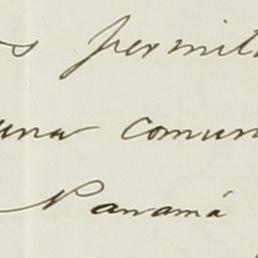 os permit
una comun
Panamá